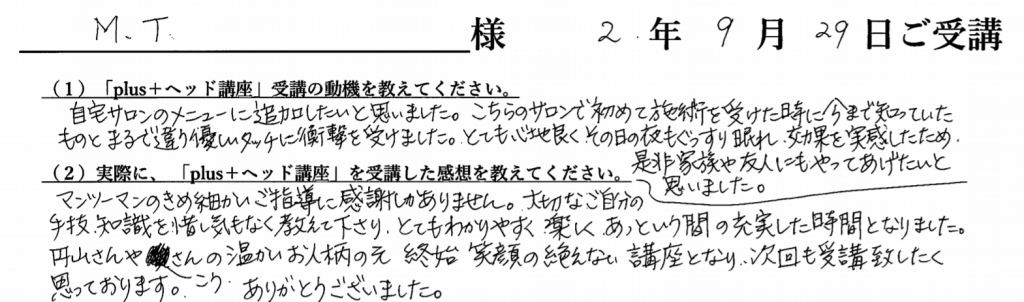 M.T. 様 2.年9月29日ご受講
(1)「plus+ヘッド講座」受講の動機を教えてください。
自宅サロンのメニューに追加したいと思いました。こちらのサロンで初めて施術を受けた時に今まで知っていた
ものとまるで違う優しいタッチに衝撃を受けました。とても心地良くその日の夜もぐっすり眠れ、効果を実感したため、
是非家族や友人にもやってあげたいと
思いました。
(2)実際に、「plus+ヘッド講座」を受講した感想を教えてください。
マンツーマンのきめ細かいご指導に感謝しかありません。大切なご自分の
手技、知識を惜し気もなく教えて下さり、とてもわかりやすく楽しく、あっという間の充実した時間となりました。
円山さんやこうさんの温かいお人柄の元 終始 笑顔の絶えない講座となり、次回も受講致したく
思っております。ありがとうございました。